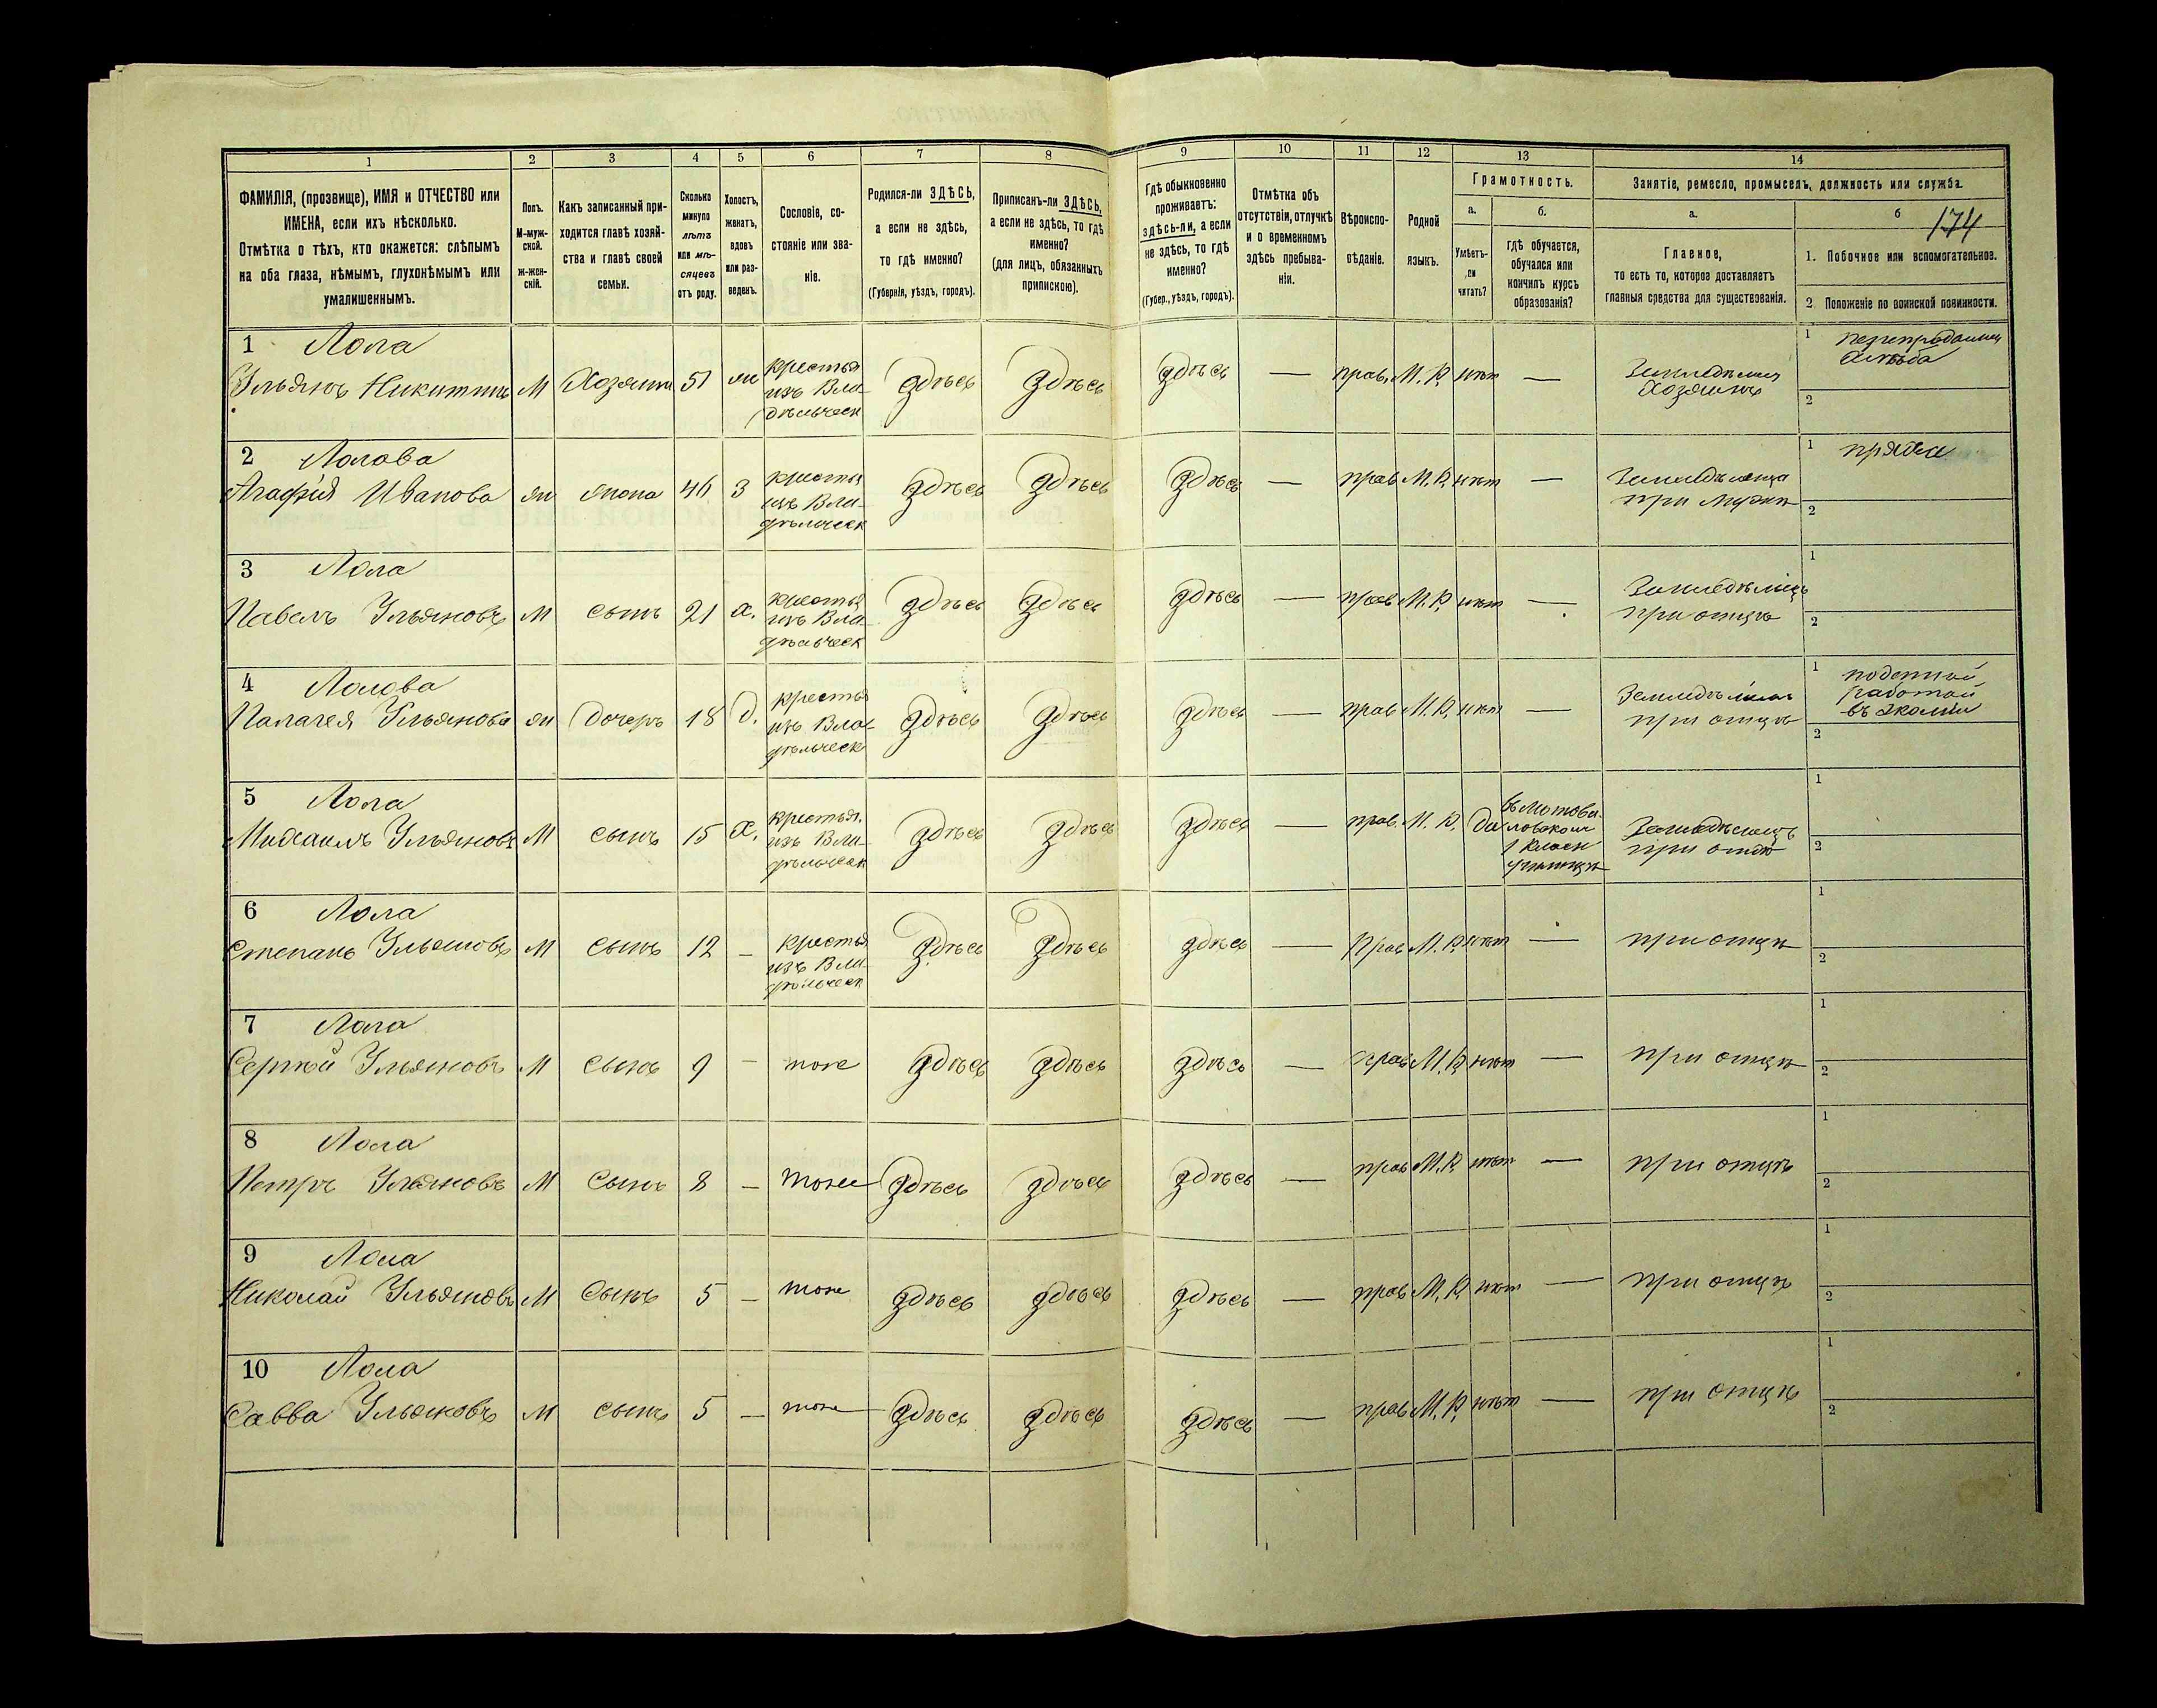 1 2 3 4 5 6 7 8 9 10 11 12 13 14
ФАМИЛІЯ, (прозвище), ИМЯ и ОТЧЕСТВО или
ИМЕНА, если ихъ нѣсколько.
Отмѣтка о тѣхъ, кто окажется: слѣпымъ
на оба глаза, нѣмымъ, глухонѣмымъ или
умалишеннымъ.
Полъ.
М-муж-
ской.
Ж-жен-
скій.
Какъ записанный при-
ходится главѣ хозяй-
ства и главѣ своей
семьи.
Сколько
минуло
лѣтъ
или мѣ-
сяцевъ
отъ роду.
Холостъ,
женатъ,
вдовъ
или раз-
веденъ.
Сословіе, со-
стояніе или зва-
ніе.
Родился-ли ЗДѢСЬ,
а если не здѣсь,
то гдѣ именно?
(Губернія, уѣздъ, городъ).
Приписанъ-ли ЗДѢСЬ,
а если не здѣсь, то гдѣ
именно?
(для лицъ, обязанныхъ
припискою).
Гдѣ обыкновенно
проживаетъ:
здѣсь-ли, а если
не здѣсь, то гдѣ
именно?
(Губер., уѣздъ, городъ).
Отмѣтка объ
отсутствіи, отлучкѣ
и о временномъ
здѣсь пребыва-
ніи.
Вѣроиспо-
вѣданіе.
Родной
языкъ.
Грамотность.
а. б.
Умѣетъ-
ли
читать?
Гдѣ обучается,
обучался или
кончилъ курсъ
образованія?
Занятіе, ремесло, промыселъ, должность или служба.
а. б 174
Главное,
то есть то, которое доставляетъ
главныя средства для существованія.
1. Побочное или вспомогательное.
2 Положеніе по воинской повинности.
1 Лола
Ульянъ Никитинъ М Хозяинъ 51 жн
крестья
изъ Вла-
дѣльческ
здѣсь здѣсь здѣсь — прав. М. Р. нѣт —
Хозяинъ
1
хлѣба
2
2 Лолова
Агафія Иванова жн жона 46 З
крестья
изъ Вла-
дѣльческ
здѣсь здѣсь здѣсь — прав М. Р. нѣт —
при мужѣ
1 пряжа
2
3 Лола
Павелъ Ульяновъ М сынъ 21 х.
крестья
изъ Вла-
дѣльческ
здѣсь здѣсь здѣсь — прав М. Р. нѣт —
Земледѣлецъ
при отцѣ
1
2
4 Лолова
Палагея Ульянова жн Дочерь 18 д.
крестья
изъ Вла-
дѣльческ
здѣсь здѣсь здѣсь — прав М. Р. нѣт —
при отцѣ
1 поденной
работой
въ экономіи
2
5 Лола
Михаилъ Ульяновъ М сынъ 15 х.
крестья.
изъ Вла-
дѣльческ
здѣсь здѣсь здѣсь — прав. М. Р. Да
въ Мотови-
ловском
1 класн
училищѣ
Земледѣлецъ
при отцѣ
1
2
6 Лола
Степанъ Ульяновъ М сынъ 12 —
крестья
изъ Вла-
дѣльческ
здѣсь здѣсь здѣсь — Прав М. Р. нѣт — при отцѣ
1
2
7 Лола
Сергѣй Ульяновъ М сынъ 9 — тоже здѣсь здѣсь здѣсь — прав М. Р. нѣт — при отцѣ
1
2
8 Лола
Петръ Ульяновъ М Сынъ 8 — тоже здѣсь здѣсь здѣсь — прав М. Р. нѣт — при отцѣ
1
2
9 Лола
Николай Ульяновъ М Сынъ 5 — тоже здѣсь здѣсь здѣсь — прав М. Р. нѣт — при отцѣ
1
2
10 Лола
Савва Ульяновъ М сынъ 5 — тоже здѣсь здѣсь здѣсь — прав М. Р. нѣт — при отцѣ
1
2